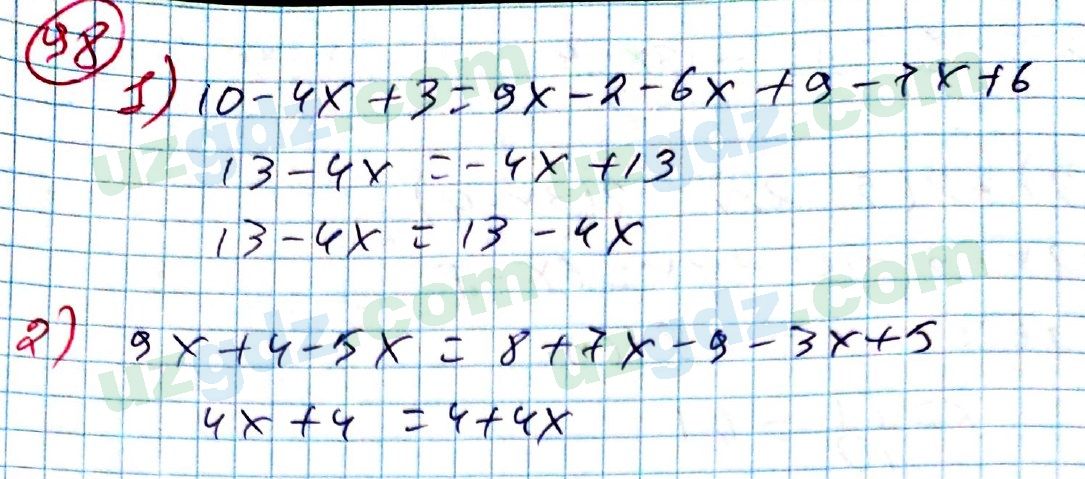 98
1) 10-4x+3=9x-2-6x+9-7x+6
13-4x=-4x+13
13-4x=13-4x
2) 9x+4-5x=8+7x-9-3x+5
4x+4=4+4x
uzgdz.com
uzgdz.com
uzgdz.com
uzgdz.com